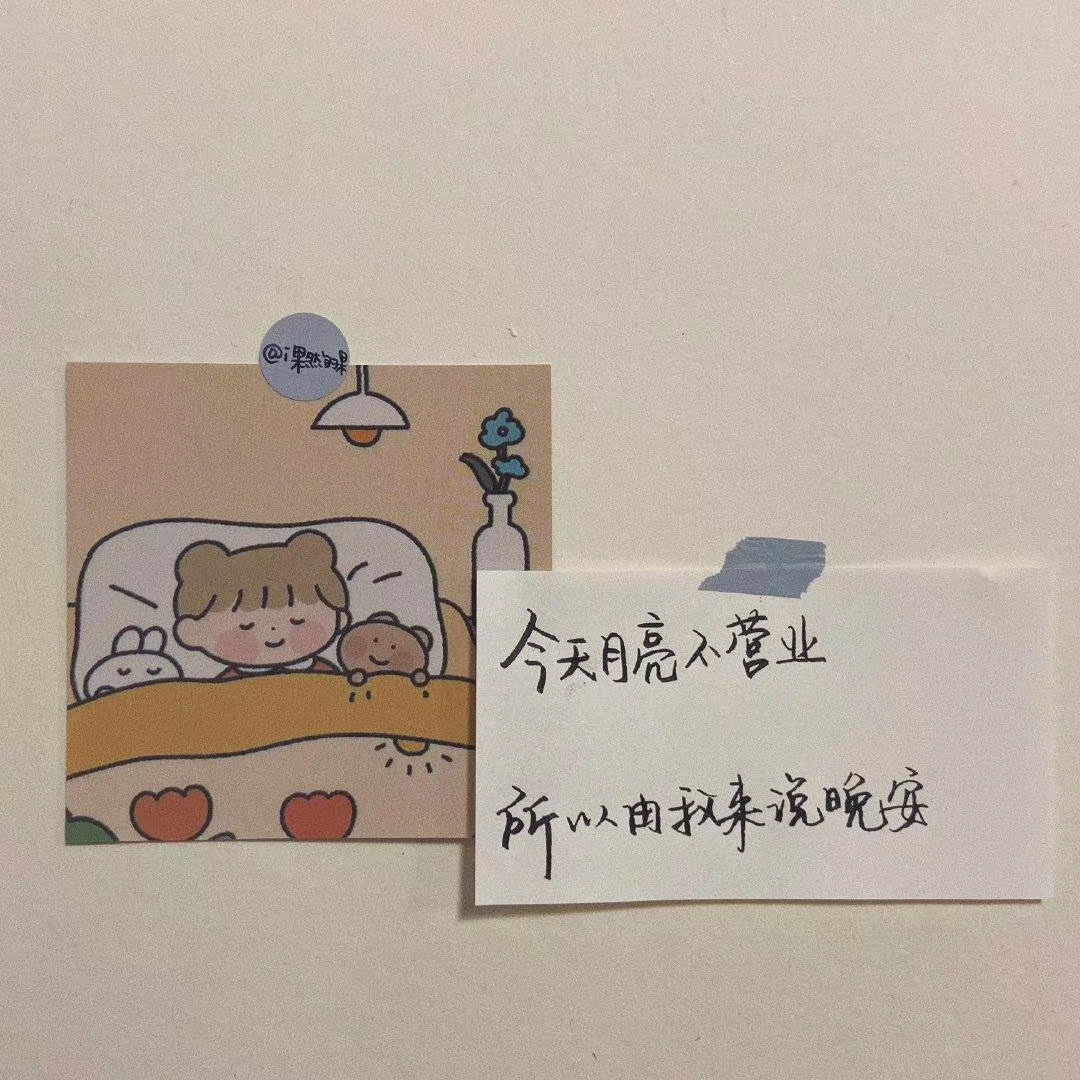 @i果然的果
今天月亮不营业
所以由我来说晚安